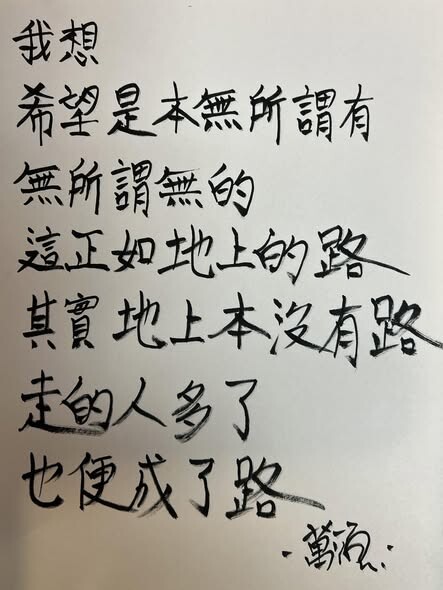 我想
希望是本無所謂有
無所謂無的
這正如地上的路
其實地上本沒有路
走的人多了
也便成了路